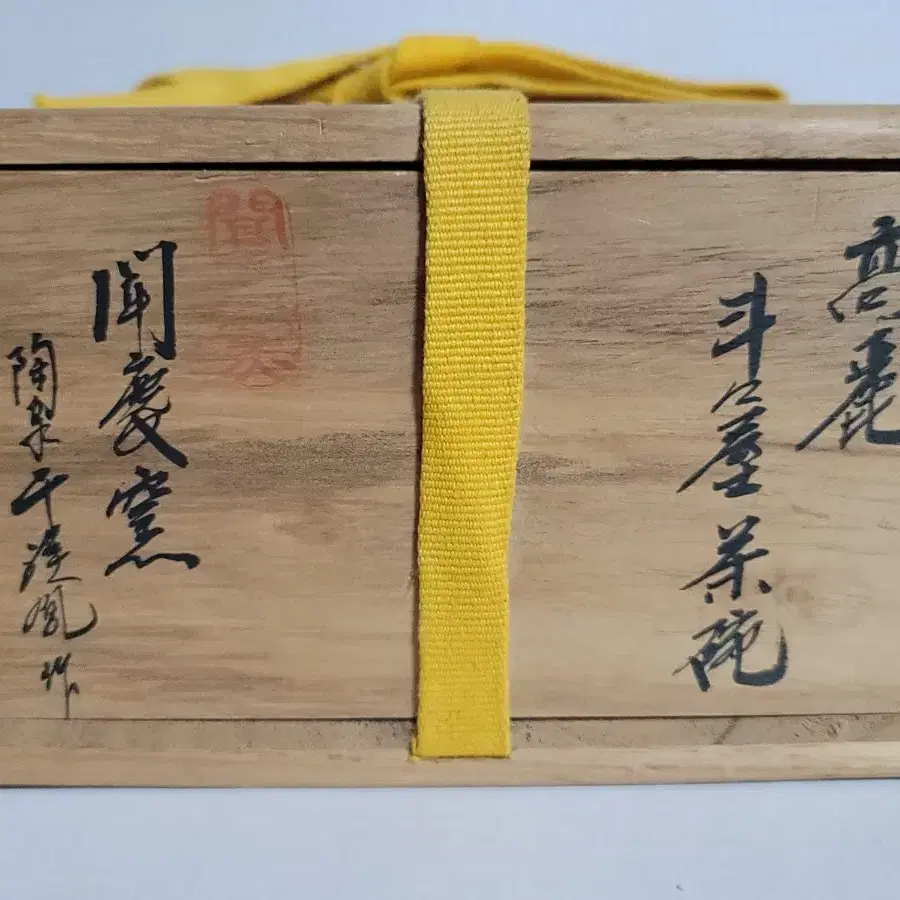 高麗
斗々屋茶碗
聞慶窯
陶泉千漢鳳作